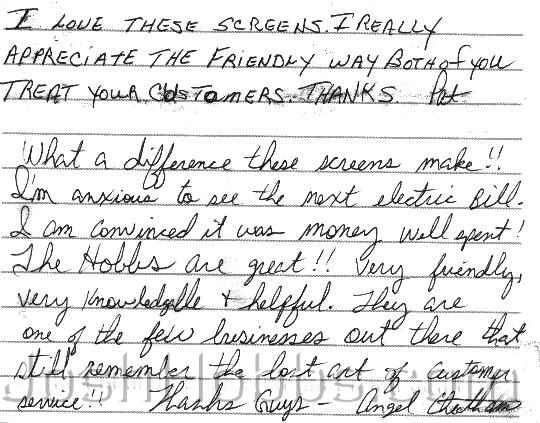 I LOVE THESE SCREENS. I REALLY
APPRECIATE THE FRIENDLY WAY BOTH of YOU
TREAT YOUR CUSTOMERS. THANKS. Pat
What a difference these screens make!!
I'm anxious to see the next electric Bill.
I am convinced it was money well spent!
The Hobbs are great!! Very friendly,
very knowledgable + helpful. They are
one of the few businesses out there that
still remember the lost art of customer
service!! Thanks Guys - Angel Cheatham
joshhobbs.com